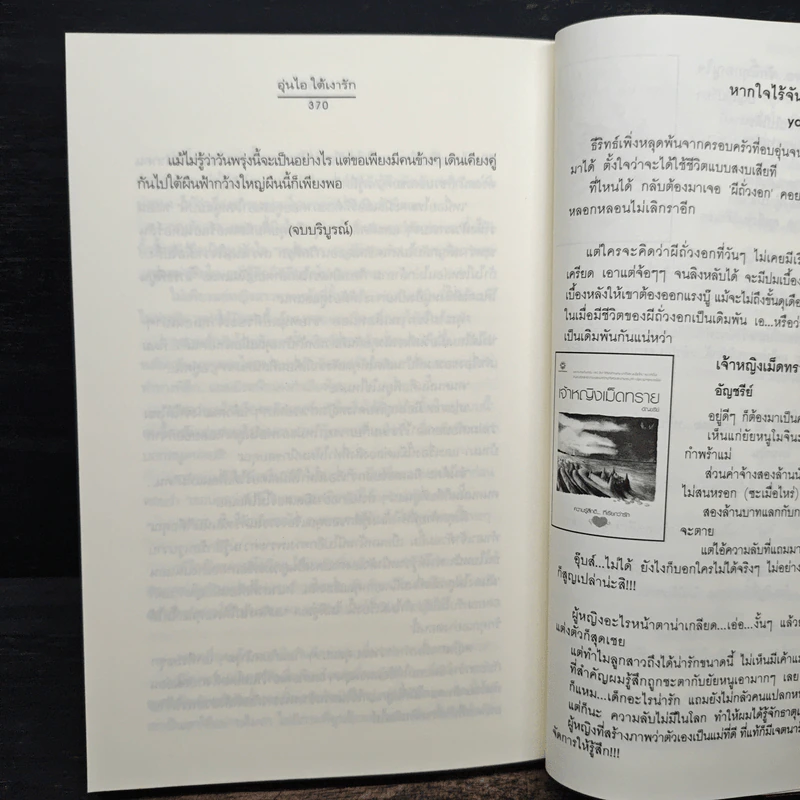 อุ่นไอ ใต้เงารัก
370
แม้ไม่รู้ว่าวันพรุ่งนี้จะเป็นอย่างไร แต่ขอเพียงมีคนข้างๆ เดินเคียงคู่
กันไปใต้ผืนฟ้ากว้างใหญ่ผืนนี้ก็เพียงพอ
(จบบริบูรณ์)
หากใจไร้จัน
ธีริทธ์เพิ่งหลุดพ้นจากครอบครัวที่อบอุ่นจน
มาได้ ตั้งใจว่าจะได้ใช้ชีวิตแบบสงบเสียที
ที่ไหนได้ กลับต้องมาเจอ 'ผีถั่วงอก' คอย
หลอกหลอนไม่เลิกราอีก
แต่ใครจะคิดว่าผีถั่วงอกที่วันๆ ไม่เคยมีเรื
เครียด เอาแต่จ้อๆๆ จนลิงหลับได้ จะมีปมเบื้อง
เบื้องหลังให้เขาต้องออกแรงบู๊ แม้จะไม่ถึงขั้นดุเดือ
ในเมื่อมีชีวิตของผีถั่วงอกเป็นเดิมพัน เอ...หรือว่า
เป็นเดิมพันกันแน่หว่า
เจ้าหญิงเม็ดทราย
อัญชรีย์
ความรู้สึกดี... ที่เรียกว่ารัก
เจ้าหญิงเม็ดทรา
อัญชรีย์
อยู่ดีๆ ก็ต้องมาเป็น
เห็นแก่ยัยหนูโมจินะ
กำพร้าแม่
ส่วนค่าจ้างสองล้านน
ไม่สนหรอก (ซะเมื่อไหร่)
สองล้านบาทแลกกับก
จะตาย
แต่ไอ้ความลับที่แถมมา
อุ๊บส์...ไม่ได้ ยังไงก็บอกใครไม่ได้จริงๆ ไม่อย่าง
ก็สูญเปล่าน่ะสิ!!!
ผู้หญิงอะไรหน้าตาน่าเกลียด...เอ่อ...งั้นๆ แล้วย
แต่งตัวก็สุดเชย
แต่ทำไมลูกสาวถึงได้น่ารักขนาดนี้ ไม่เห็นมีเค้าแม
ที่สำคัญผมรู้สึกถูกชะตากับยัยหนูเอามากๆ เลย
ก็แหม...เด็กอะไรน่ารัก แถมยังไม่กลัวคนแปลกหน
แต่ก็นะ ความลับไม่มีในโลก ทำให้ผมได้รู้จักธาตุแ
ผู้หญิงที่สร้างภาพว่าตัวเองเป็นแม่ที่ดี ที่แท้ก็มีเจตนาร้
จัดการให้รู้สึก!!!